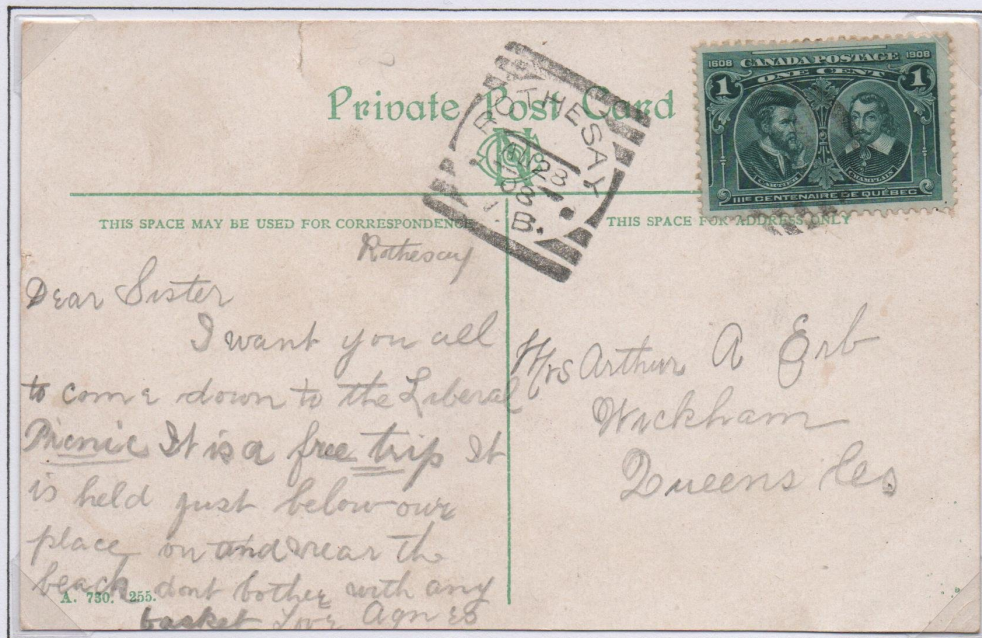 Private Post Card
ROTHESAY
28
08
N.B.
1608 CANADA POSTAGE 1908
ONE CENT
1 1
CARTIER CHAMPLAIN
IIIe CENTENAIRE DE QUÉBEC
THIS SPACE MAY BE USED FOR CORRESPONDENCE
THIS SPACE FOR ADDRESS ONLY
Rothesay
Dear Sister
I want you all
to come down to the Liberal
Picnic It is a free trip It
is held just below our
place on and near the
beach dont bother with any
basket Love Agnes
A. 730. 255.
Mrs Arthur A Erb
Wickham
Queens Co